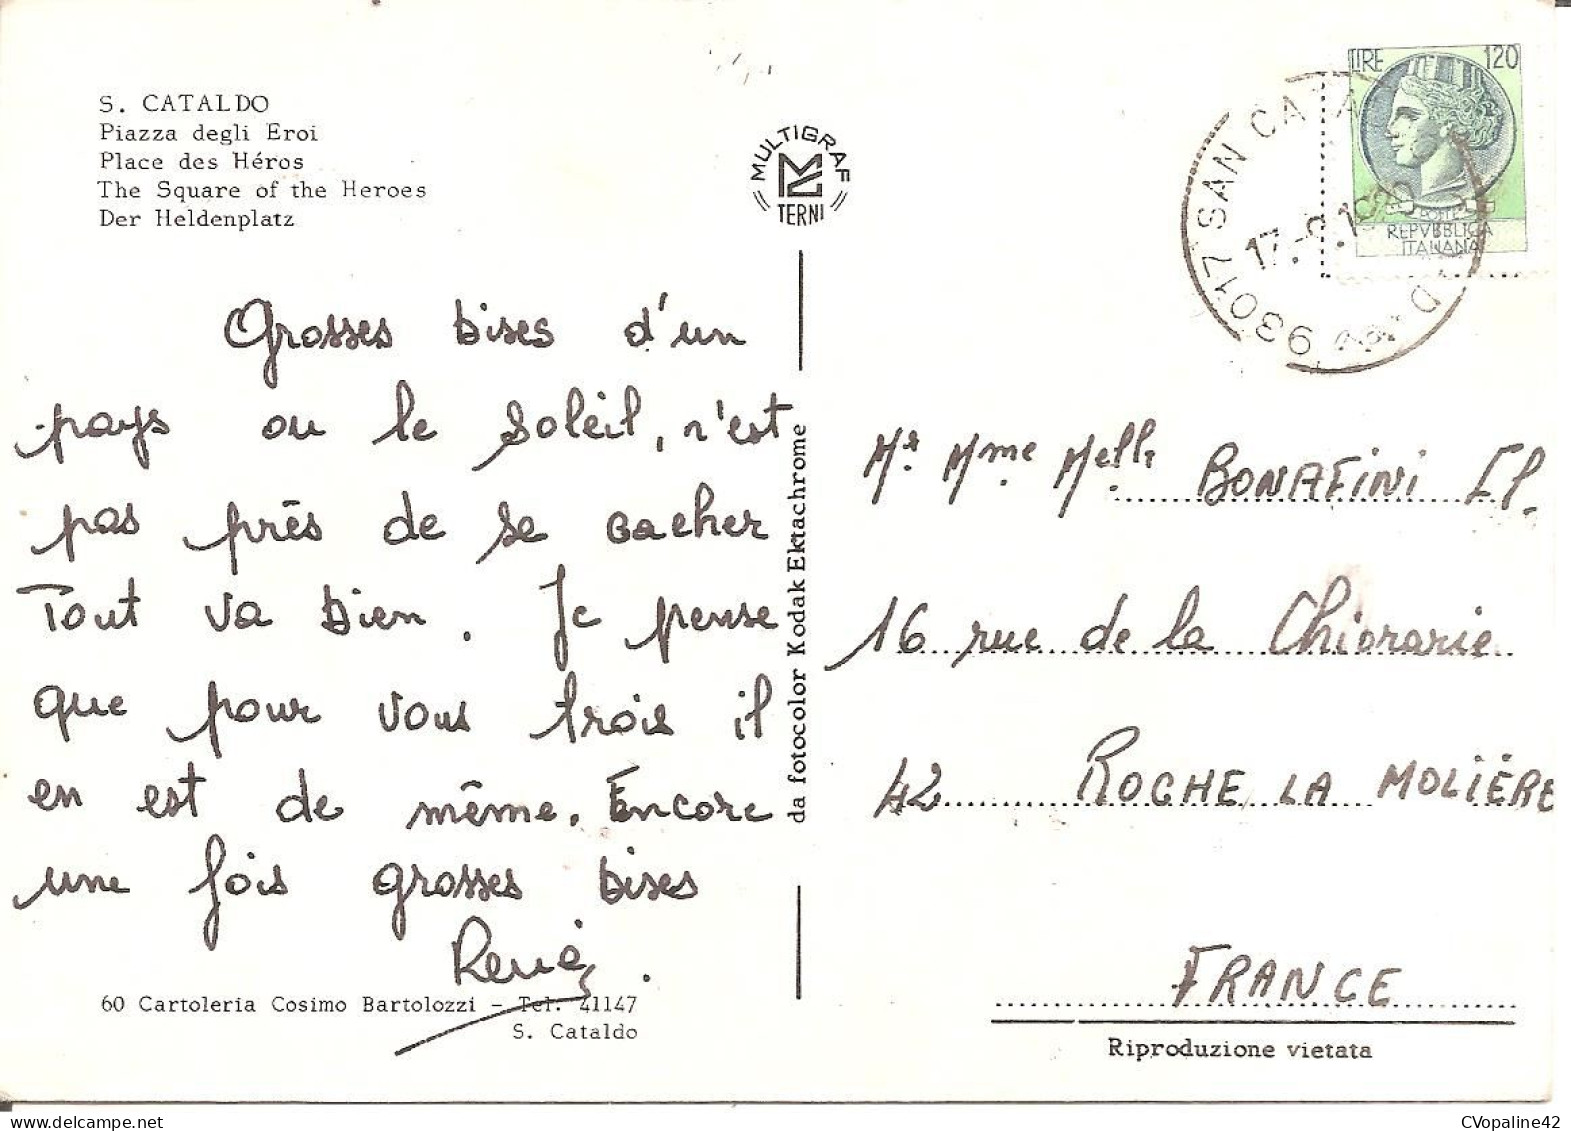 S. CATALDO
Piazza degli Eroi
Place des Héros
The Square of the Heroes
Der Heldenplatz
MULTIGRAF
TERNI
LIRE 120
POSTE
REPVBBLICA
ITALIANA
93017 SAN CATALDO
17.-9.19
Grosses bises d'un
pays ou le soleil, n'est
pas près de se cacher
Tout va bien. Je pense
que pour vous trois il
en est de même. Encore
une fois grosses bises
René.
da fotocolor Kodak Ektachrome
Mr. Mme Melle BONAFINI Cl.
16 rue de la Chiorarie
42 ROCHE LA MOLIÈRE
FRANCE
60 Cartoleria Cosimo Bartolozzi - Tel. 41147
S. Cataldo
Riproduzione vietata
CVopaline42